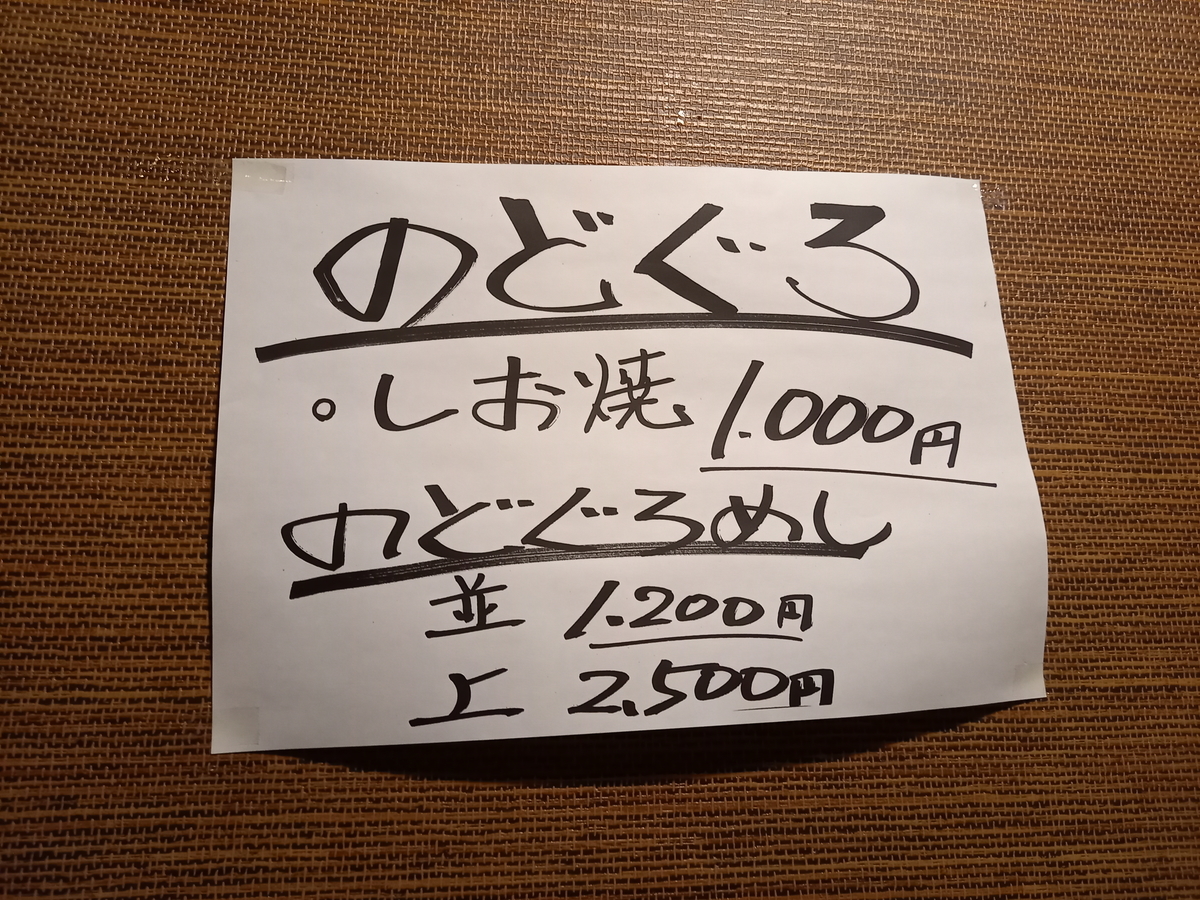 のどぐろ
。しお焼 1.000円
のどぐろめし
並 1.200円
上 2,500円